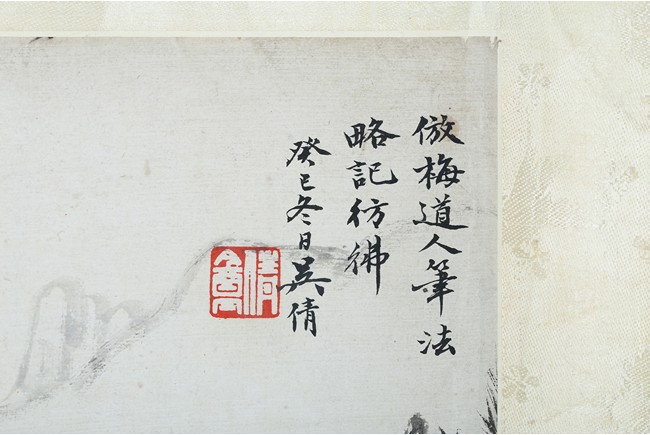 倣梅道人筆法
略記彷彿
癸巳冬日吳倩